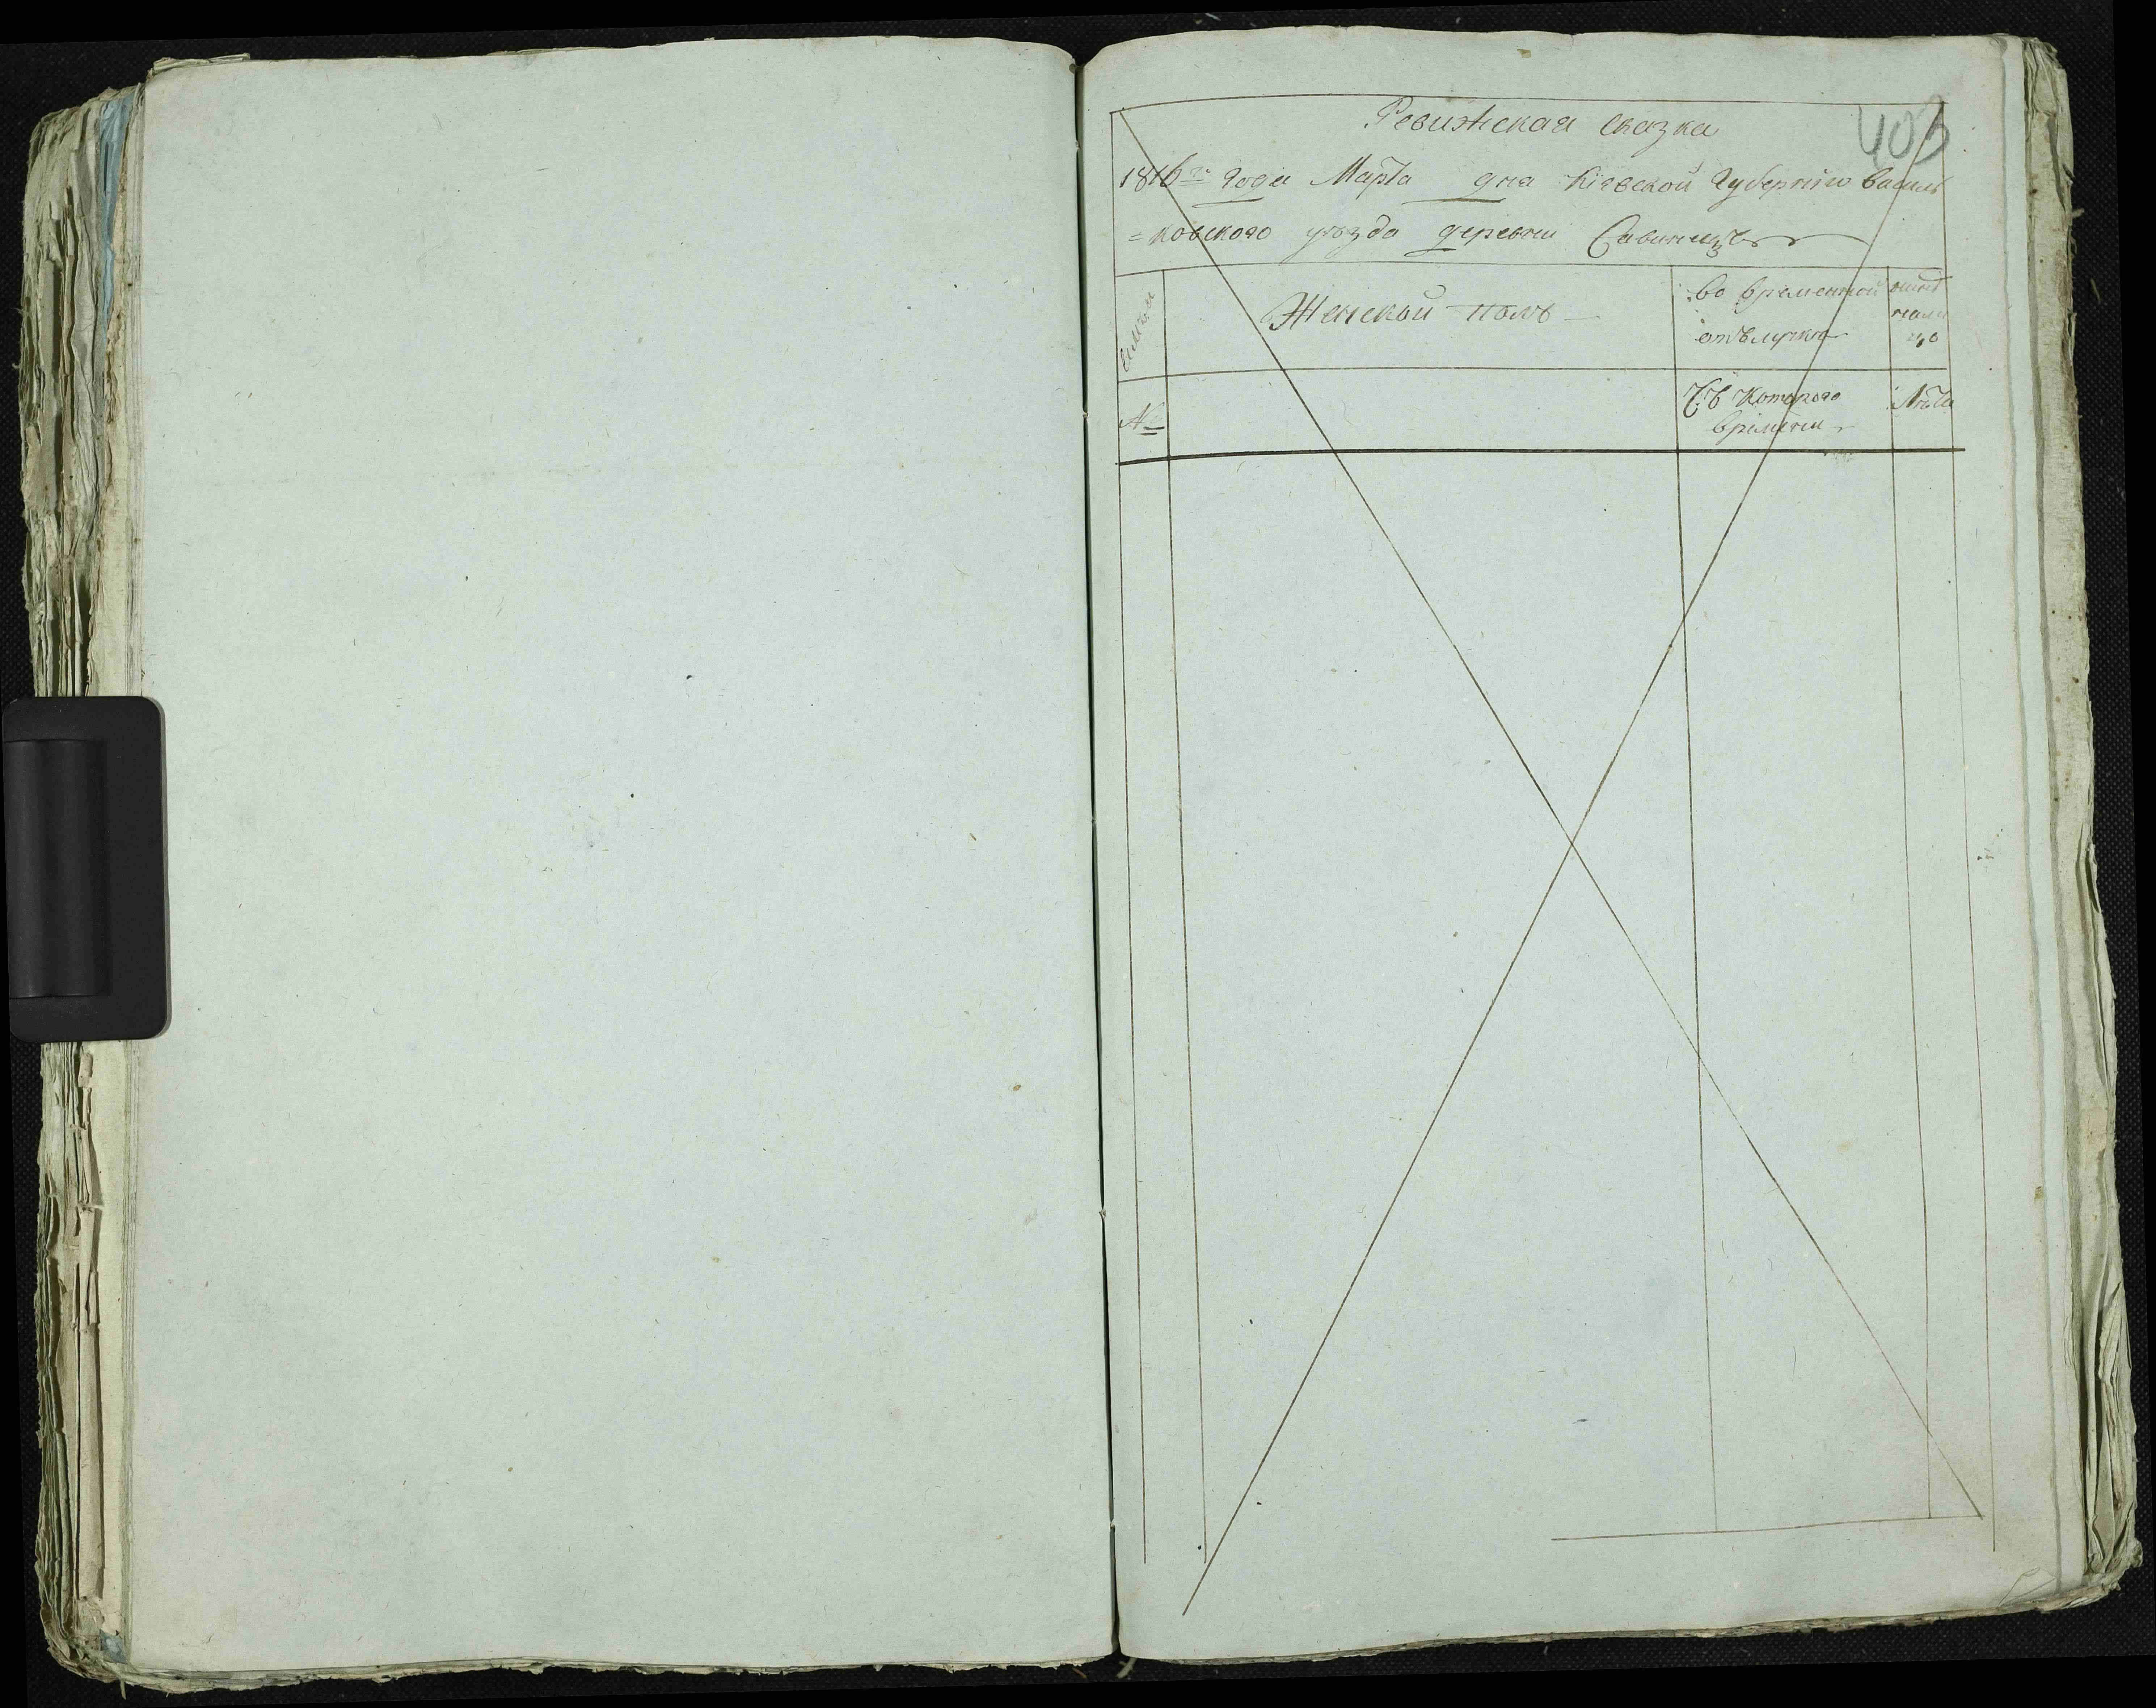 403
Ревижская сказка
1816го Года Марта дня Кіевской Губерніи Василь
=ковского уѣзда деревни Савинецъ
Семьи
Женской полъ
во временной
отълучке
нынѣ
на ли
цо
№
Съ Которого
времени
Лѣта